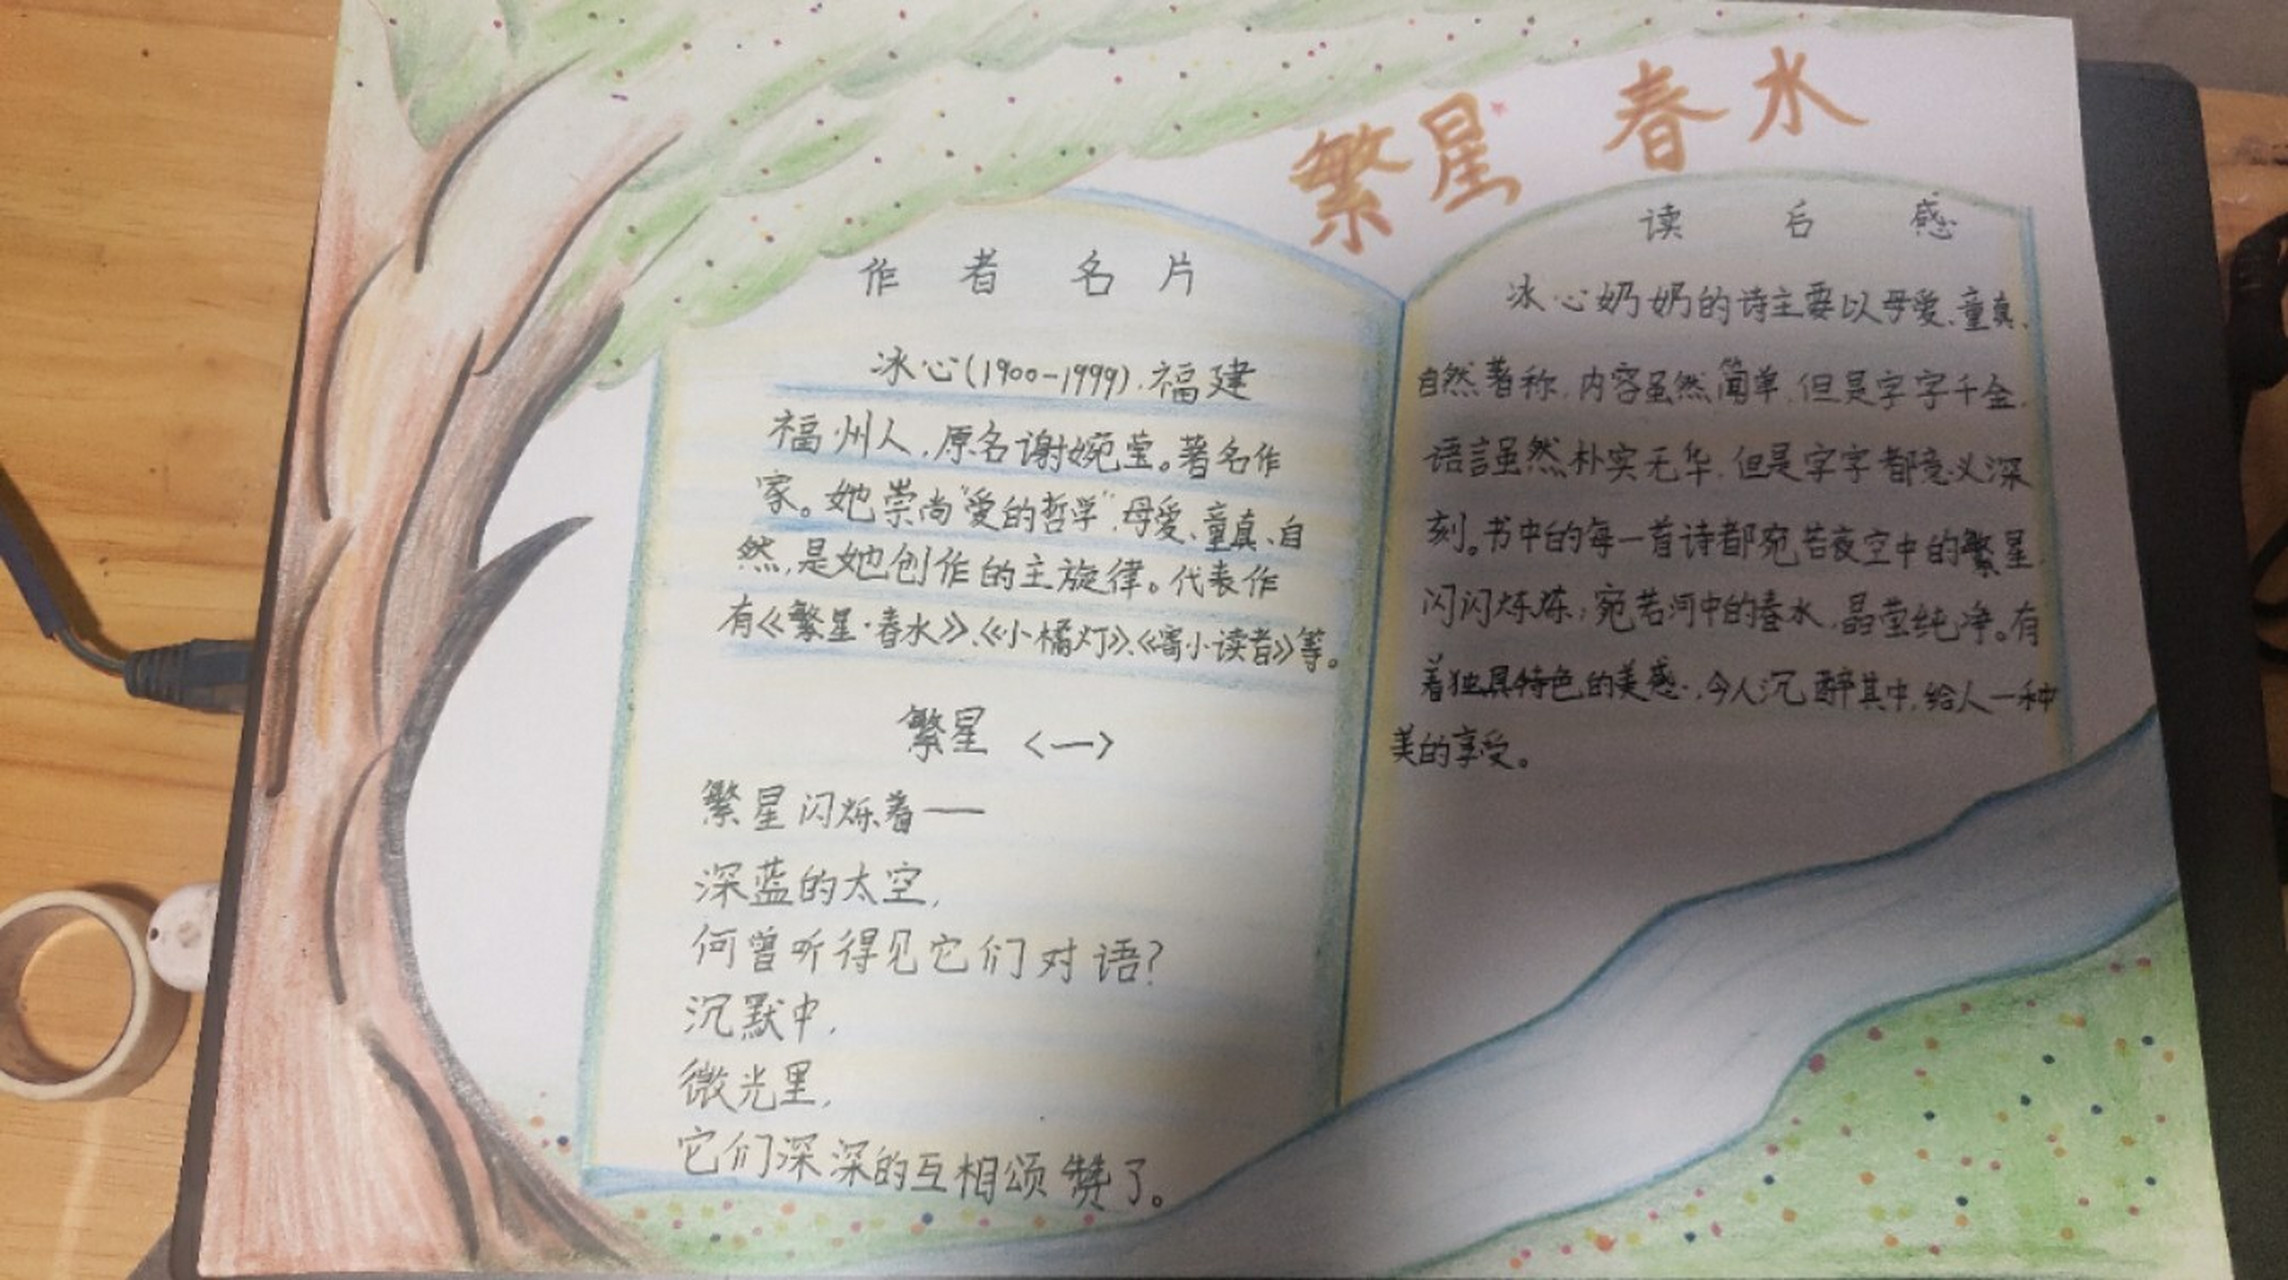 繁星 春水
作者名片
冰心(1900-1999),福建
福州人,原名谢婉莹。著名作
家。她崇尚“爱的哲学”,母爱、童真、自
然,是她创作的主旋律。代表作
有《繁星·春水》、《小橘灯》、《寄小读者》等。
繁星 <一>
繁星闪烁着——
深蓝的太空,
何曾听得见它们对语?
沉默中,
微光里,
它们深深的互相颂赞了。
读后感
冰心奶奶的诗主要以母爱、童真、
自然著称,内容虽然简单,但是字字千金,
语言虽然朴实无华,但是字字都意义深
刻。书中的每一首诗都宛若夜空中的繁星,
闪闪烁烁;宛若河中的春水,晶莹纯净。有
着独具特色的美感,令人沉醉其中,给人一种
美的享受。